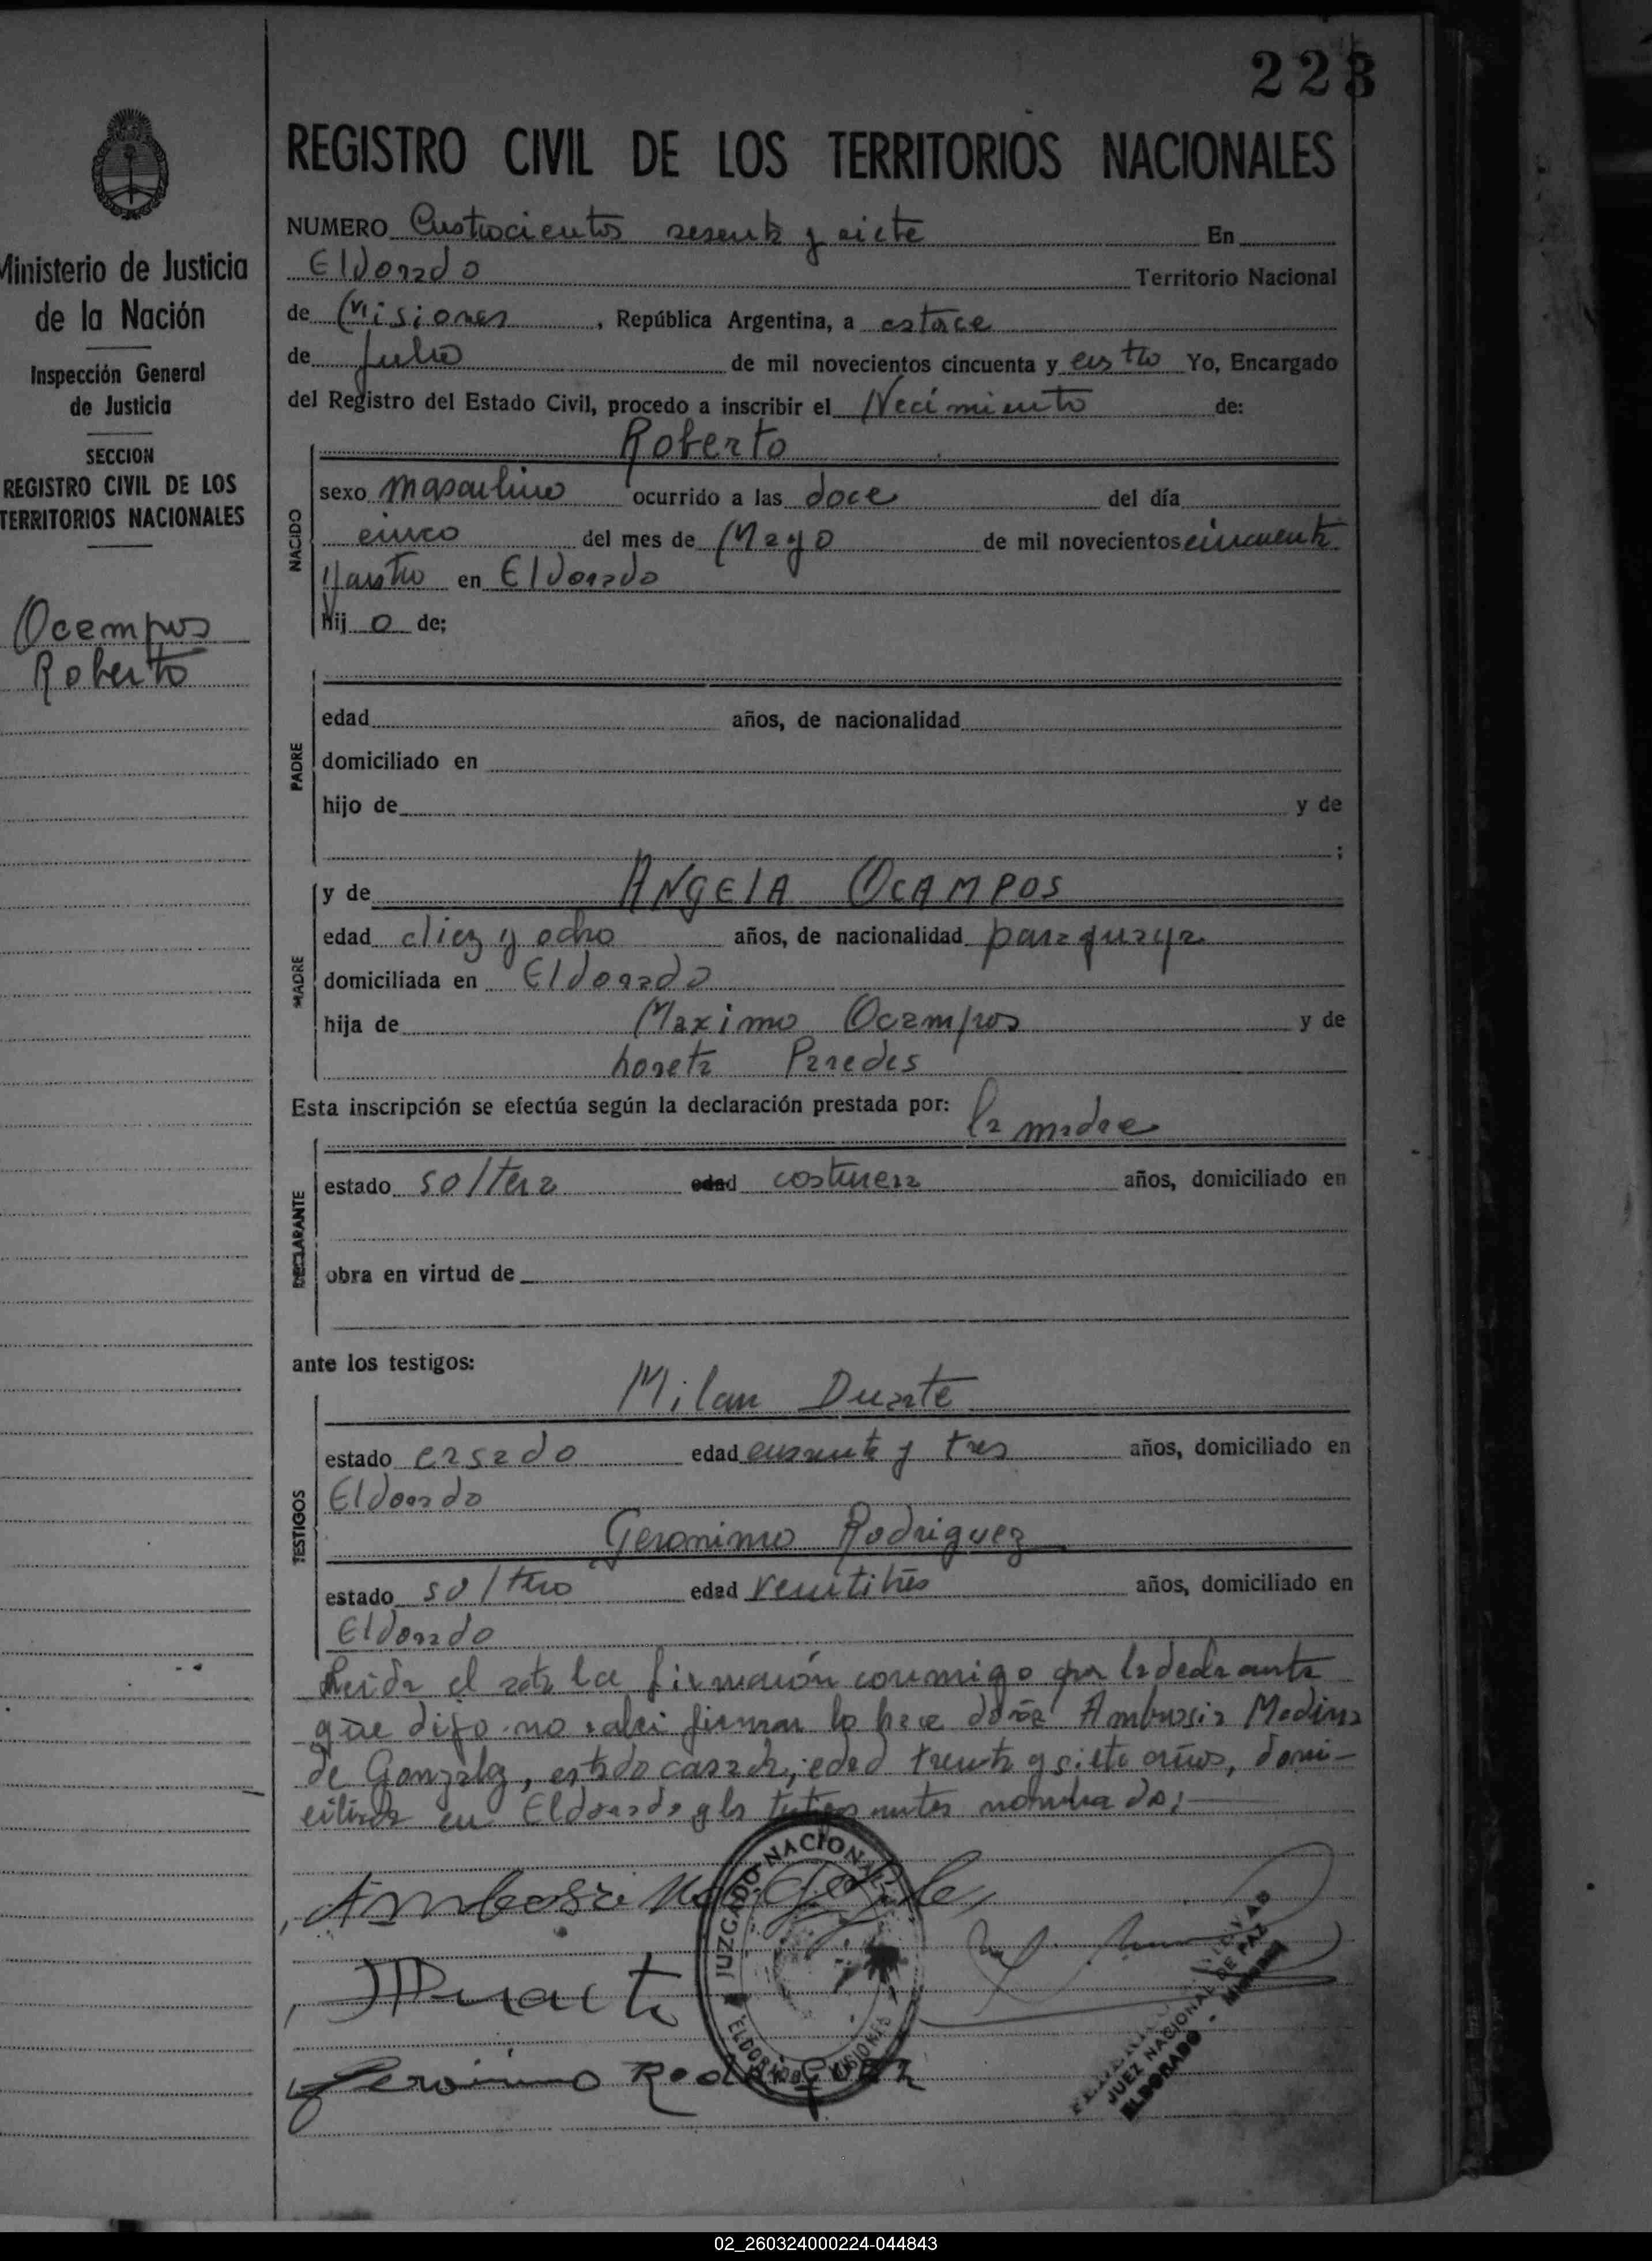 223
REGISTRO CIVIL DE LOS TERRITORIOS NACIONALES
Ministerio de Justicia
de la Nación
Inspección General
de Justicia
SECCION
REGISTRO CIVIL DE LOS
TERRITORIOS NACIONALES
Ocampos
Roberto
NUMERO Custrocientos sesenta y siete En
Eldorado Territorio Nacional
de Misiones, República Argentina, a catorce
de Julio de mil novecientos cincuenta y cuatro Yo, Encargado
del Registro del Estado Civil, procedo a inscribir el Nacimiento de:
Roberto
NACIDO
sexo masculino ocurrido a las doce del día
cinco del mes de Mayo de mil novecientos cincuenta
y cuatro en Eldorado
hij o de:
PADRE
edad años, de nacionalidad
domiciliado en
hijo de y de
;
MADRE
y de ANGELA OCAMPOS
edad diez y ocho años, de nacionalidad paraguaya
domiciliada en Eldorado
hija de Maximo Ocampos y de
Loreta Paredes
Esta inscripción se efectúa según la declaración prestada por: la madre
DECLARANTE
estado soltera edad costurera años, domiciliado en
obra en virtud de
ante los testigos:
TESTIGOS
Milan Duarte
estado casado edad cuarenta y tres años, domiciliado en
Eldorado
Geronimo Rodriguez
estado soltero edad veintitrés años, domiciliado en
Eldorado
Leida el acta la conmigo por la declarante
que dijo no saber firmar lo hace doña Ambrosia Medina
de Gonzalez, estado casada, edad treinta y siete años, domi-
ciliada en Eldorado y los testigos antes nombrados;
Ambrosi
Duarte
Geronimo Rodriguez
JUZGADO NACIONAL
ELDORADO MISIONES
JUEZ NACIONAL DE PAZ
ELDORADO - MISIONES
02_260324000224-044843